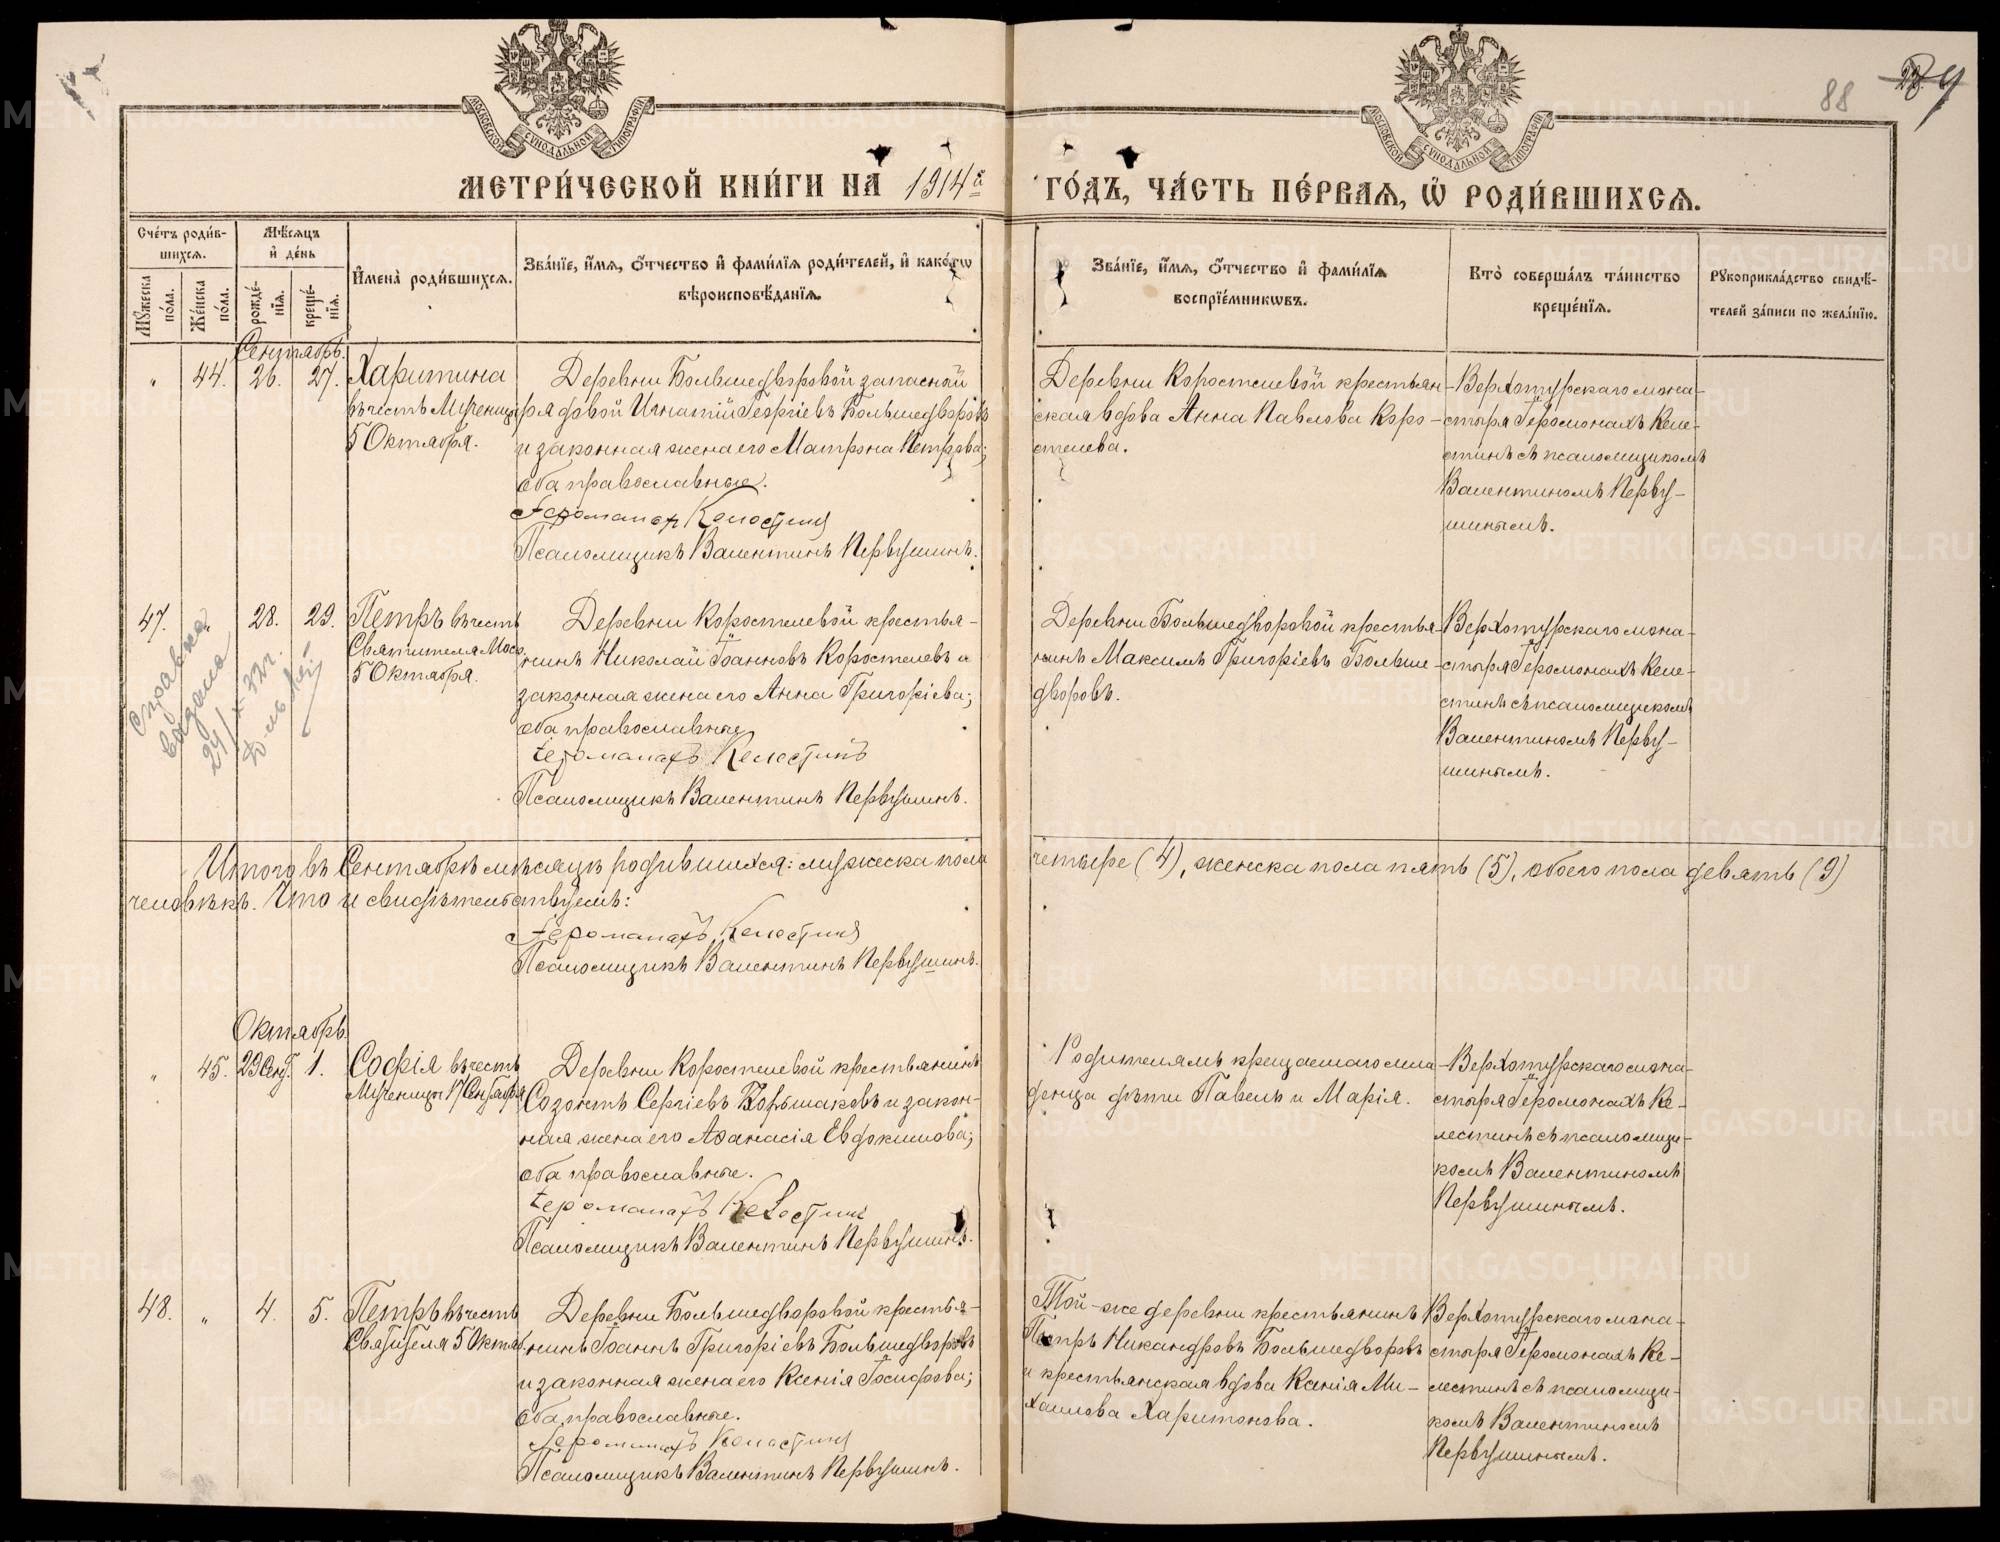 МОСКОВСКОЙ СѴНОДАЛЬНОЙ ТИПОГРАФІИ
МОСКОВСКОЙ СѴНОДАЛЬНОЙ ТИПОГРАФІИ
88
МЕТРИ́ЧЕСКОЙ КНИ́ГИ НА 1914й
ГО́ДЪ, ЧА́СТЬ ПЕ́РВАЯ, Ѡ҆ РОДИ́ВШИХСЯ.
Сче́тъ роди́в-
шихся.
Мѣ́сяцъ
и҆ де́нь
Му́жеска
по́ла.
Же́нска
по́ла.
рожде́-
нія.
креще́-
нія.
И҆мена̀ роди́вшихся.
Зва́ніе, и҆́мя, о҆́тчество и҆ фами́лія роди́телей, и҆ како́гѡ
вѣроисповѣ́данія.
Зва́ніе, и҆́мя, о҆́тчество и҆ фами́лія
воспріе́мникѡвъ.
Кто̀ соверша́лъ та́инство
креще́нія.
Рукоприкла́дство свидѣ́-
телей за́писи по жела́нію.
Сентябрь.
„ 44. 26. 27.
Харитина
въ честь Мученицы
5 Октября.
Деревни Большедворовой запасной
рядовой Игнатій Георгіевъ Большедворовъ
и законная жена его Матрона Петрова;
оба православные.
Іеромонахъ Келестинъ
Псаломщикъ Валентинъ Первушинъ.
Деревни Коростелевой крестьян-
ская вдова Анна Павлова Коро-
стелева.
Верхотурскаго мона-
стыря Іеромонахъ Келе-
стинъ съ псаломщикомъ
Валентиномъ Перву-
шинымъ.
47. „ 28. 29.
Справка
выдана
24/X-37г.
Петръ въ честь
Святителя Моск.
5 Октября.
Деревни Коростелевой крестья-
нинъ Николай Іоанновъ Коростелевъ и
законная жена его Анна Григоріева;
оба православные
Іеромонахъ Келестинъ
Псаломщикъ Валентинъ Первушинъ.
Деревни Большедворовой крестья-
нинъ Максимъ Григоріевъ Больше-
дворовъ.
Верхотурскаго мона-
стыря Іеромонахъ Келе-
стинъ съ псаломщикомъ
Валентиномъ Перву-
шинымъ.
Итого въ Сентябрѣ мѣсяцѣ родившихся: мужеска пола четыре (4), женска пола пять (5), обоего пола девять (9)
человѣкъ. Что и свидѣтельствуемъ:
Іеромонахъ Келестинъ
Псаломщикъ Валентинъ Первушинъ.
Октябрь.
„ 45. 29 Сент. 1.
Софія въ честь
Мученицы 17 Сентября
Деревни Коростелевой крестьянинъ
Созонтъ Сергіевъ Корнилаковъ и закон-
ная жена его Аѳанасія Евдокимова;
оба православные.
Іеромонахъ Келестинъ
Псаломщикъ Валентинъ Первушинъ.
Родителямъ крещаемаго мла-
денца дѣти Павелъ и Марія.
Верхотурскаго мона-
стыря Іеромонахъ Ке-
лестинъ съ псаломщи-
комъ Валентиномъ
Первушинымъ.
48. „ 4. 5.
Петръ въ честь
Святителя 5 Октяб.
Деревни Большедворовой крестья-
нинъ Іоаннъ Григоріевъ Большедворовъ
и законная жена его Ксенія Іосифова;
оба православные.
Іеромонахъ Келестинъ
Псаломщикъ Валентинъ Первушинъ.
Той-же деревни крестьянинъ
Петръ Никандровъ Большедворовъ
и крестьянская вдова Ксенія Ми-
хаилова Харитонова.
Верхотурскаго мона-
стыря Іеромонахъ Ке-
лестинъ съ псаломщи-
комъ Валентиномъ
Первушинымъ.
METRIKI.GASO-URAL.RU